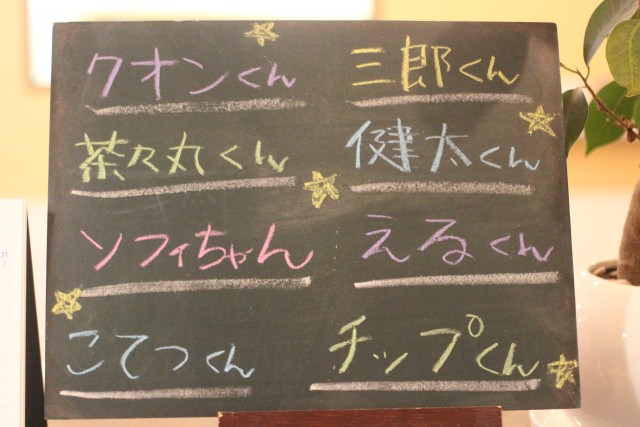 クオンくん
茶々丸くん
ソフィちゃん
こてつくん
三郎くん
健太くん
えるくん
チップくん